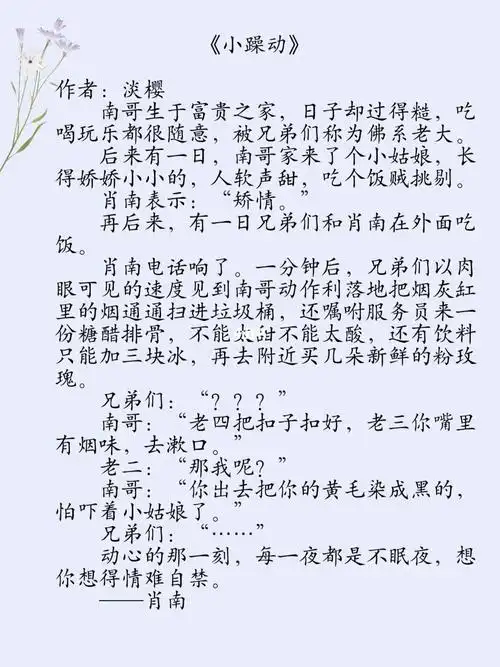 《小躁动》
作者：淡樱
南哥生于富贵之家，日子却过得糙，吃
喝玩乐都很随意，被兄弟们称为佛系老大。
后来有一日，南哥家来了个小姑娘，长
得娇娇小小的，人软声甜，吃个饭贼挑剔。
肖南表示：“矫情。”
再后来，有一日兄弟们和肖南在外面吃
饭。
肖南电话响了。一分钟后，兄弟们以肉
眼可见的速度见到南哥动作利落地把烟灰缸
里的烟通通扫进垃圾桶，还嘱咐服务员来一
份糖醋排骨，不能太甜不能太酸，还有饮料
只能加三块冰，再去附近买几朵新鲜的粉玫
瑰。
兄弟们：“？？？”
南哥：“老四把扣子扣好，老三你嘴里
有烟味，去漱口。”
老二：“那我呢？”
南哥：“你出去把你的黄毛染成黑的，
怕吓着小姑娘了。”
兄弟们：“……”
动心的那一刻，每一夜都是不眠夜，想
你想得情难自禁。
——肖南